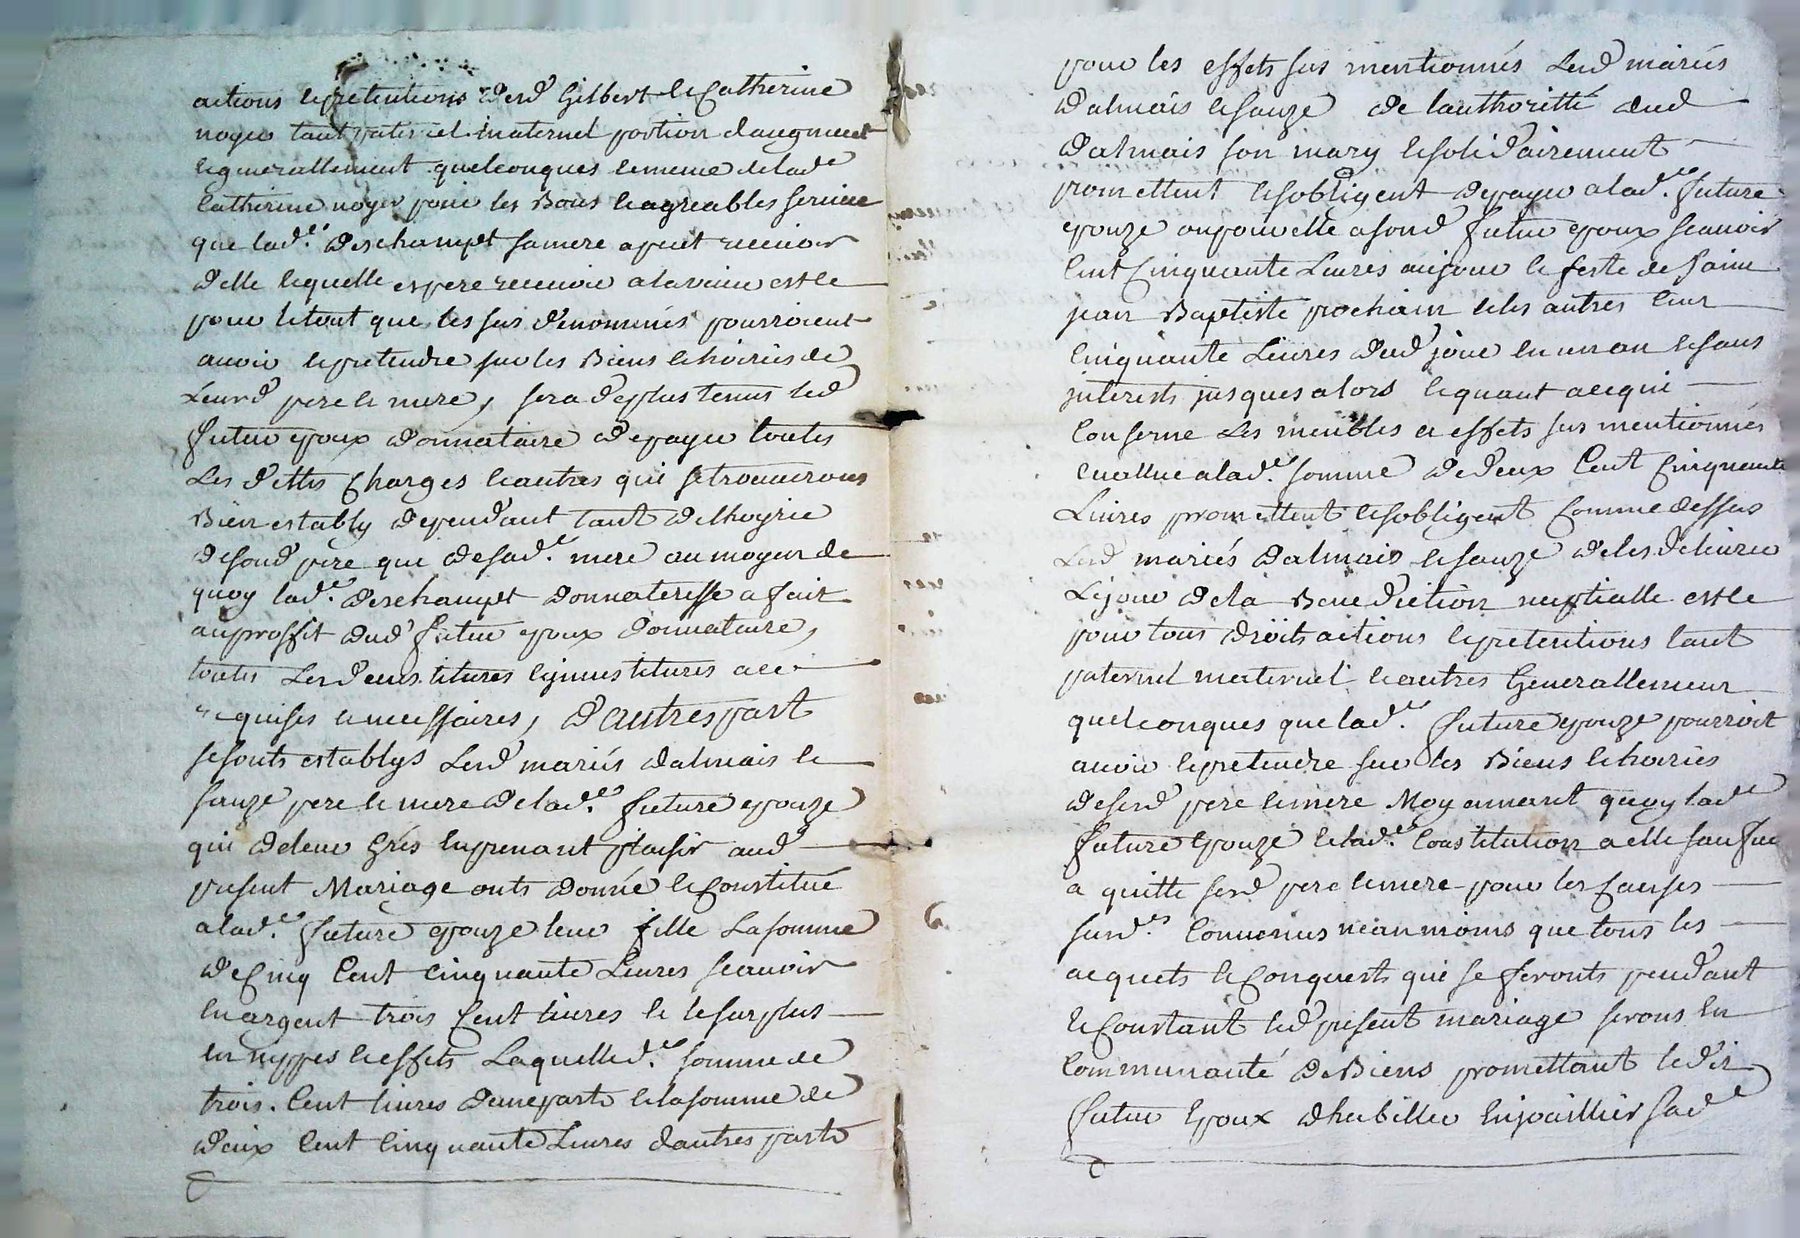 actions et pretentions desd Gilbert et Catherine
noyer tant paternel maternel portion daugment
et generallement quelconques et meme de lad.e
Catherine noyer pour les Bons et agreables service
que lad.e deschampt sa mere a peut recevoir
d'elle lequelle espere recevoir a lavenir est le
pour le tout que les sus denommés pourroient
avoir et pretendre sur les Biens et hoiries de
Leurd pere et mere, sera de plus tenus led
futur epoux donnataire de payer toutes
Les dettes Charges et autres qui se trouverons
Bien establis dependant tant de lhoyrie
de sond pere que de sad.e mere au moyen de
quoy lad.e deschampt donnateresse a fait
au proffit dud futur epoux donnataire,
toutes Les devestitures et jnvestitures a ce
requises et necessaires, d'autres part
se sonts establys Lesd mariés dalmais et
sauze pere et mere de lad.e future epouze
qui de leur grés en prenant plaisir aud
present Mariage onts donné et Constitué
a lad.e future epouze leur fille La somme
de Cinq Cent cinquante Livres scavoir
en argent trois Cent livres et le surplus
en nyppes et effets Laquelle d.e somme de
trois Cent livres d'une parts et la somme de
deux Cent cinquante Livres dautres parts
pour les effets sus mentionnés Lesd mariés
dalmais et sauze de lauthoritté dud
dalmais son mary et solidairement
promettent et sobligent de payer a lad.e future
epouze ou pour elle a sond futur epoux scavoir
Cent Cinquante Livres au jour et feste de saint
jean Baptiste prochain et les autres Cent
Cinquante Livres dud jour en un an et sans
jnterests jusques alors et quant a ce qui
Conserne Les meubles et effets sus mentionnés
evallue a lad.e somme de deux Cent Cinquante
Livres promettent et sobligent Comme dessus
Lesd mariés dalmais et sauze de les delivrer
Le jour de la Benediction nuptialle est le
pour tous droits actions et pretentions tant
paternel maternel et autres Generallement
quelconques que lad.e future epouze pourroit
avoir et pretendre sur les Biens et hoiries
de sesd pere et mere Moyennant quoy lad.e
future Epouze et lad.e Constitution a elle
a quitte sesd pere et mere pour les Causes
susd.es Convenus neanmoins que tous les
acquets et Conquests qui se feronts pendant
et Constant led present mariage serons en
Communauté de Biens promettant led
futur Epoux dhabiller Enjoaillier sad.e